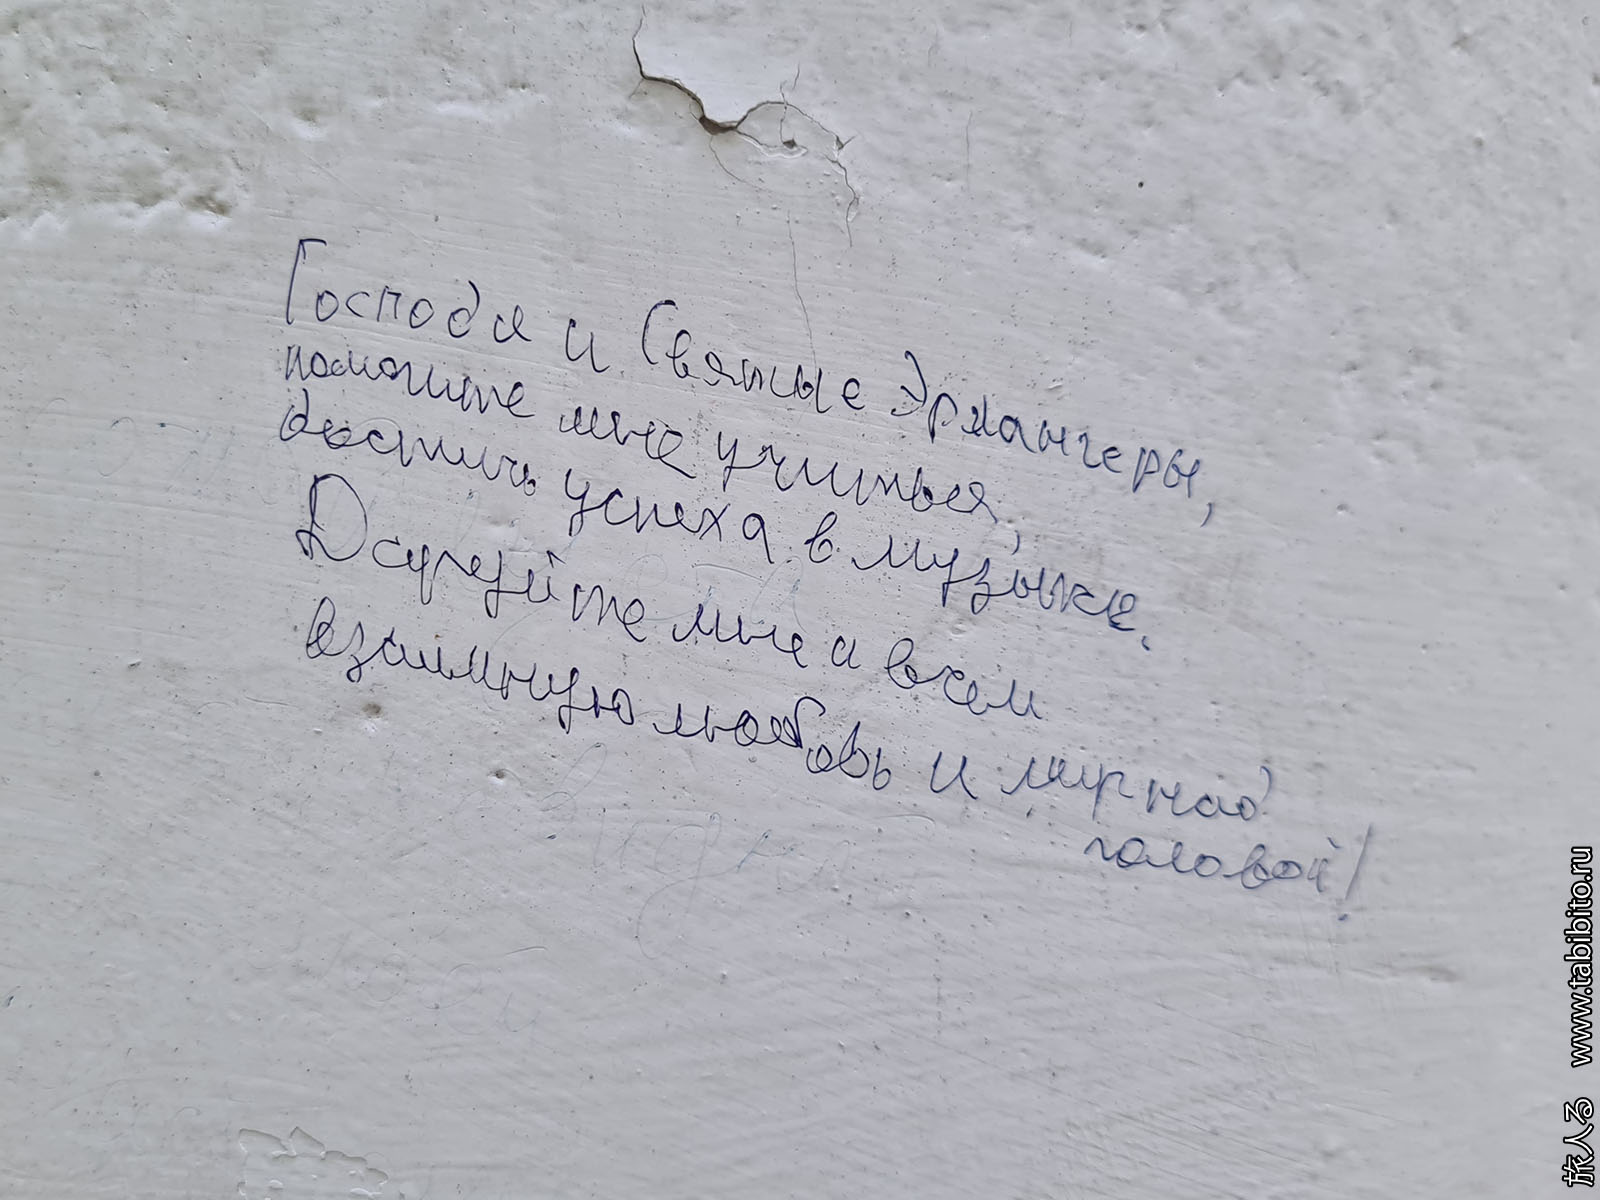 Господи и Святые Эрлангеры,
помогите мне учиться,
достичь успеха в музыке.
Даруйте мне и всем
взаимную любовь и мир над
головой!
旅人る www.tabibito.ru